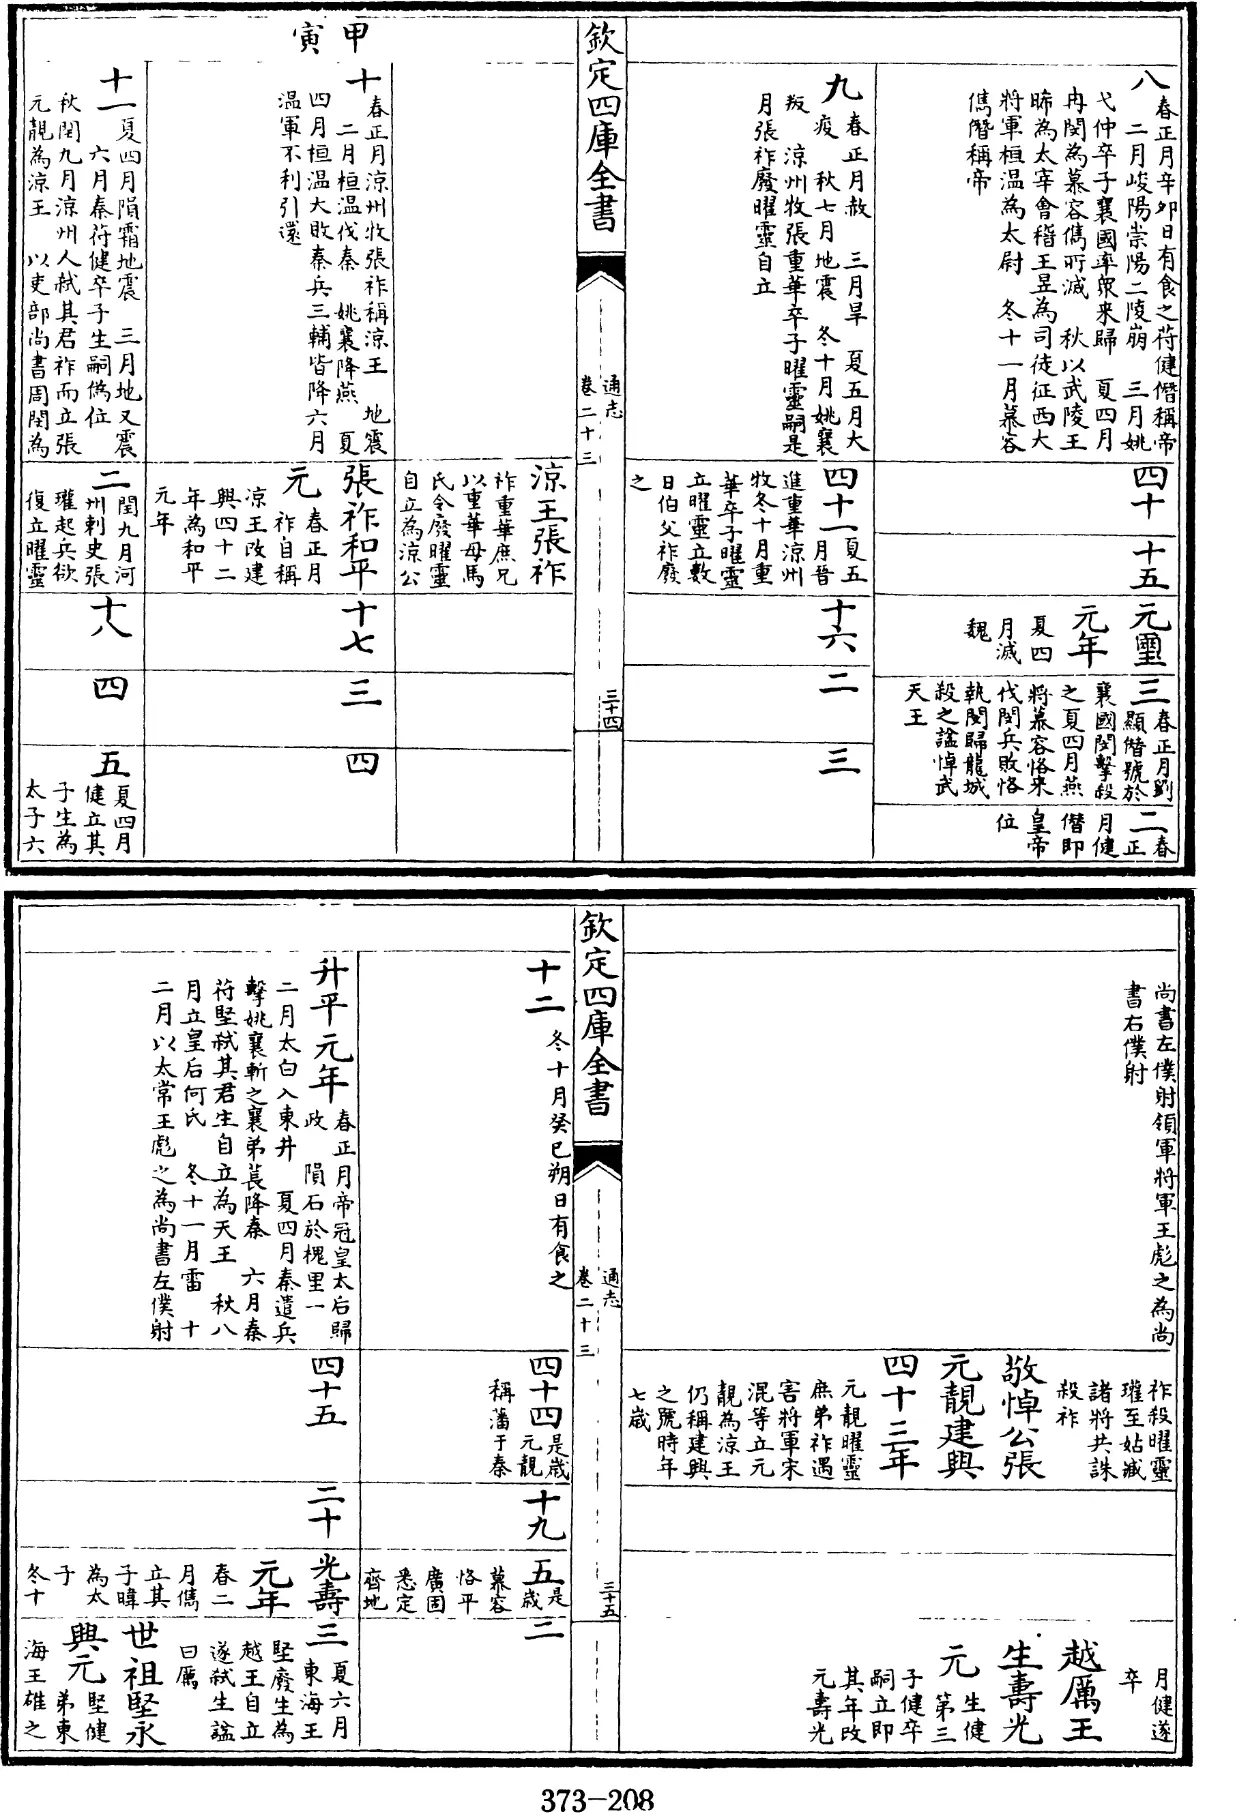 八春正月辛卯日有食之苻健僭稱帝
二月峻陽崇陽二陵崩 三月姚
弋仲卒子襄國率衆来歸 夏四月
冉閔為慕容儁所滅 秋以武陵王
晞為太宰會稽王昱為司徒征西大
將軍桓温為太尉 冬十一月慕容
儁僭稱帝
四十
十五
元璽
元年
夏四
月滅
魏
三春正月劉
顯僭號於
襄國閔擊殺
之夏四月燕
將慕容恪来
伐閔兵敗恪
執閔歸龍城
殺之諡悼武
天王
二春正
月健
僭即
皇帝
位
九春正月赦 三月旱 夏五月大
疫 秋七月地震 冬十月姚襄
叛 涼州牧張重華卒子曜靈嗣是
月張祚廢曜靈自立
四十一夏五
月晉
進重華涼州
牧冬十月重
華卒子曜靈
立曜靈立數
日伯父祚廢
之
十六
二
三
欽定四庫全書
通志
卷二十三
三十四
涼王張祚
祚重華庶兄
以重華母馬
氏令廢曜靈
自立為涼公
甲寅
十春正月涼州牧張祚稱涼王 地震
二月桓温伐秦 姚襄降燕 夏
四月桓温大敗秦兵三輔皆降六月
温軍不利引還
張祚和平
元春正月
祚自稱
涼王改建
興四十二
年為和平
元年
十七
三
四
十一夏四月隕霜地震 三月地又震
六月秦苻健卒子生嗣偽位
秋閏九月涼州人弒其君祚而立張
元靚為涼王 以吏部尚書周閔為
二閏九月河
州刺史張
瓘起兵欲
復立曜靈
十八
四
五夏四月
健立其
子生為
太子六
尚書左僕射領軍將軍王彪之為尚
書右僕射
祚殺曜靈
瓘至姑臧
諸將共誅
殺祚
敬悼公張
元靚建興
四十三年
元靚曜靈
庶弟祚遇
害將軍宋
混等立元
靚為涼王
仍稱建興
之號時年
七歲
月健遂
卒
越厲王
生壽光
元生健
第三
子健卒
嗣立即
其年改
元壽光
欽定四庫全書
通志
卷二十三
三十五
十二冬十月癸巳朔日有食之
四十四是歲
元靚
稱藩于秦
十九
五是歲
慕容
恪平
廣固
悉定
齊地
二
升平元年春正月帝冠皇太后歸
政 隕石於槐里一
二月太白入東井 夏四月秦遣兵
擊姚襄斬之襄弟萇降秦 六月秦
苻堅弒其君生自立為天王 秋八
月立皇后何氏 冬十一月雷 十
二月以太常王彪之為尚書左僕射
四十五
二十
光壽
元年
春二
月儁
立其
子暐
為太
子
冬十
三夏六月
東海王
堅廢生為
越王自立
遂弒生諡
曰厲
世祖堅永
興元堅健
弟東
海王雄之
373-208